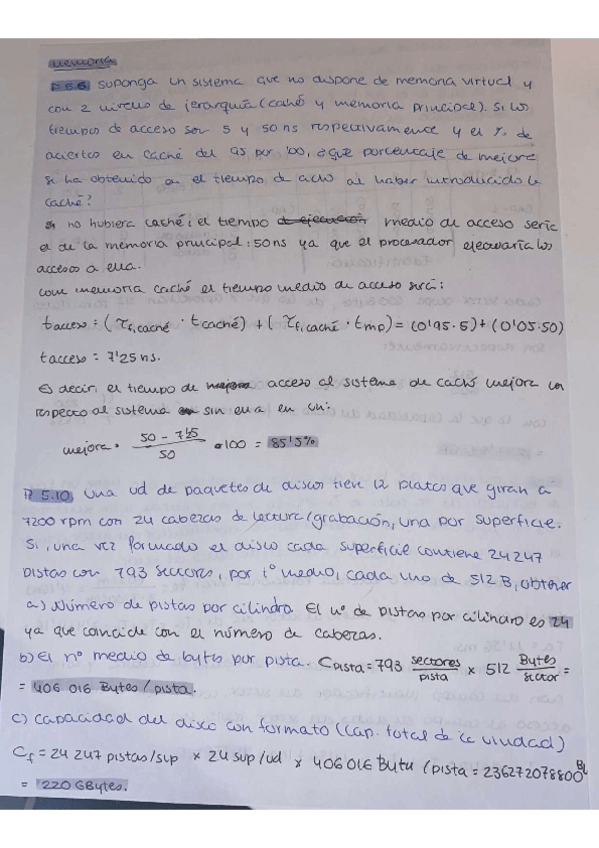 memoria
P 5.6 Suponga un sistema que no dispone de memoria virtual y
con 2 niveles de jerarquía (caché y memoria principal). Si los
tiempos de acceso son 5 y 50 ns respectivamente y el % de
aciertos en caché del 95 por 100, ¿qué porcentaje de mejora
se ha obtenido en el tiempo de al haber introducido la
caché?
Si no hubiera caché, el tiempo de ejecución medio de acceso sería
el de la memoria principal: 50ns ya que el procesador ejecutaría los
accesos a ella.
Con memoria caché el tiempo medio de acceso será:
tacceso = (τf,caché · tcaché) + (τf,caché · tmp) = (0'95·5)+(0'05·50)
tacceso = 7'25 ns.
Es decir, el tiempo de mejora acceso al sistema de caché mejora con
respecto al sistema sin ella en un:
mejora = (50 - 7'25)/50 · 100 = 85'5%
P 5.10 Una ud de paquetes de discos tiene 12 platos que giran a
7200 rpm con 24 cabezas de lectura/grabación, una por superficie.
Si, una vez formado el disco cada superficie contiene 24247
pistas con 793 sectores, por tº medio, cada uno de 512 B, obtener
a) Número de pistas por cilindro. El nº de pistas por cilindro es 24
ya que coincide con el número de cabezas.
b) El nº medio de bytes por pista. Cpista = 793 sectores/pista x 512 Bytes/sector =
= 406 016 Bytes / pista.
c) Capacidad del disco con formato (cap. total de la unidad)
Cf = 24 247 pistas/sup x 24 sup/ud x 406 016 Bytes / pista = 236272078800 B
= 220 GBytes.